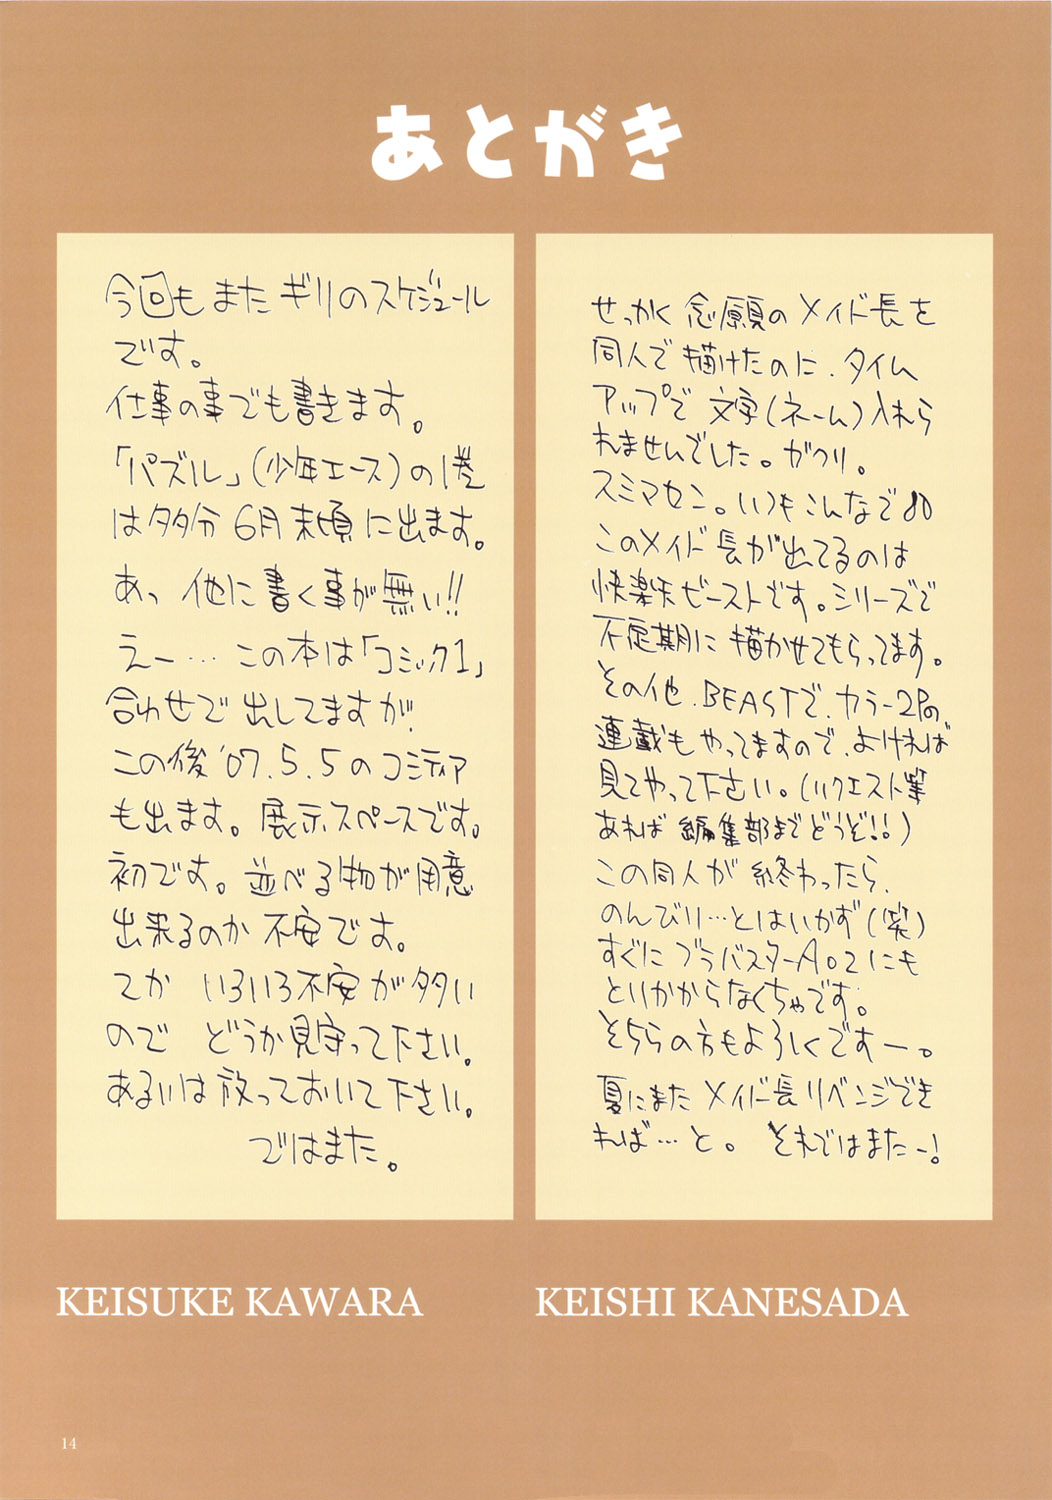 あとがき
今回もまたギリのスケジュール
です。
仕事の事でも書きます。
「パズル」(少年エース)の1巻
は多分6月末頃に出ます。
あっ 他に書く事が無い!!
えー… この本は「コミック1」
合わせで出してますが
この後'07.5.5のコミティア
も出ます。展示スペースです。
初です。並べる物が用意
出来るのか不安です。
てか いろいろ不安が多い
ので どうか見守って下さい。
あるいは放っておいて下さい。
ではまた。
KEISUKE KAWARA
せっかく念願のメイド長を
同人で描けたのに、タイム
アップで文字(ネーム)入れら
れませんでした。ガクリ。
スミマセン。いつもこんなで
このメイド長が出てるのは
快楽天ビーストです。シリーズで
不定期に描かせてもらってます。
その他、BEASTで、カラー2Pの
連載もやってますので、よければ
見てやって下さい。(リクエスト等
あれば編集部までどうぞ!!)
この同人が終わったら、
のんびり…とはいかず(笑)
すぐにブラバスターA02にも
とりかからなくちゃです。
そちらの方もよろしくですー。
夏にまたメイド長リベンジでき
れば…と。 それではまたー!
KEISHI KANESADA
14